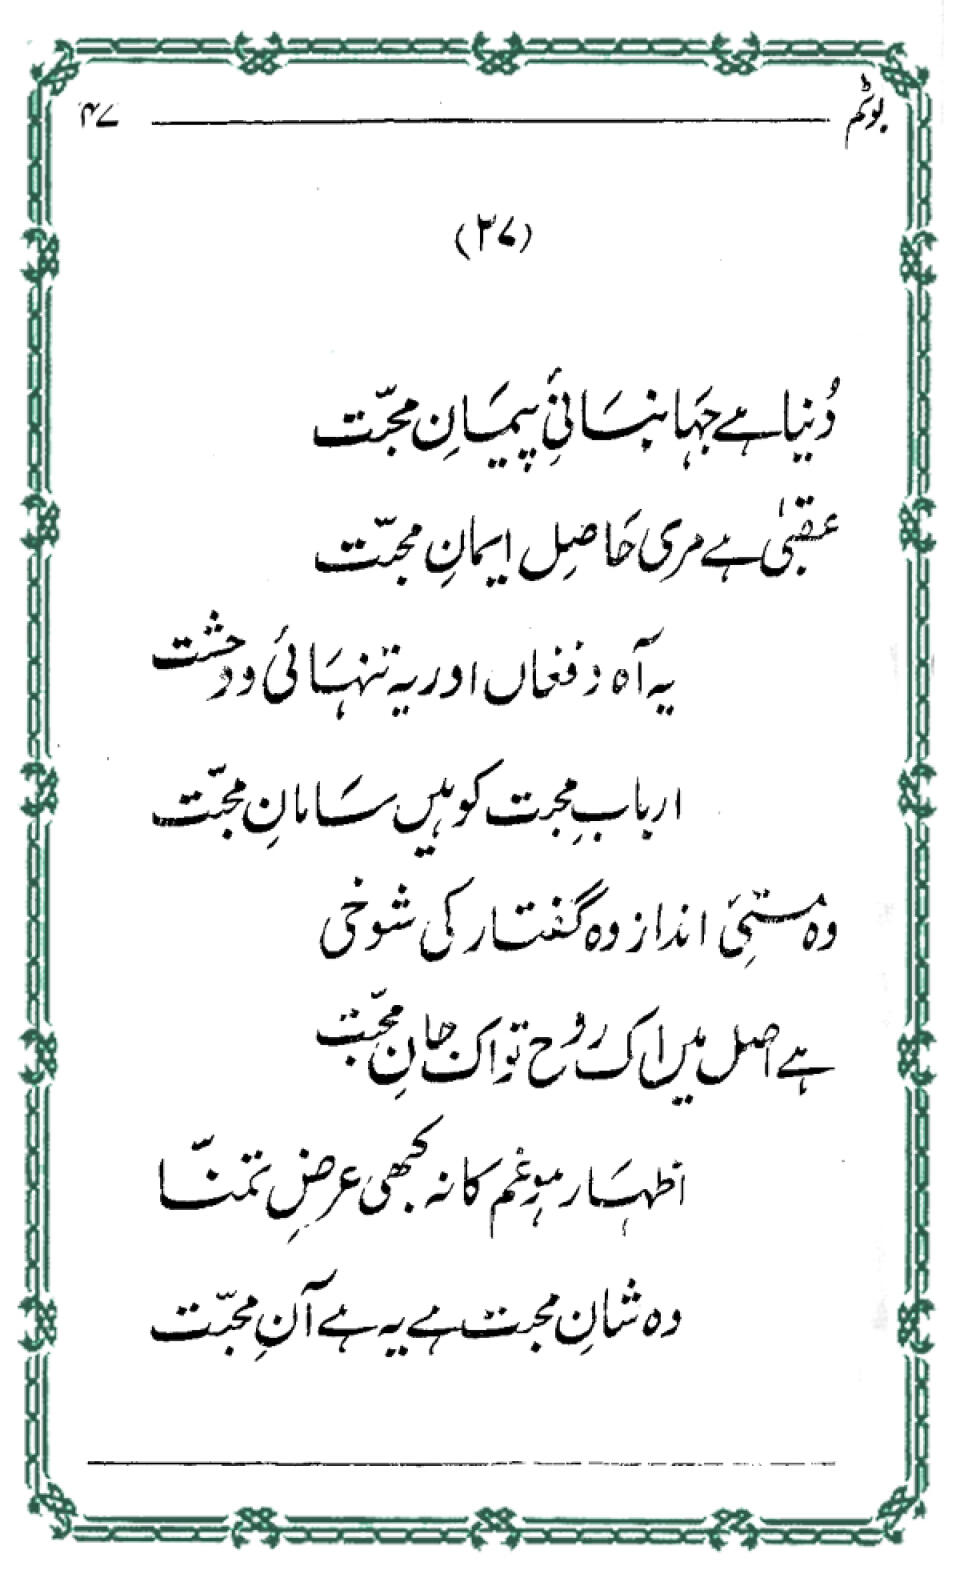 بوٹم ۴۷
(۲۷)
دُنیا ہے جہانبانیٔ پیمانِ محبّت
عقبیٰ ہے مری حَاصِل ایمانِ محبّت
یہ آہ و فغاں اور یہ تنہائی و وحشت
اربابِ محبت کو ہیں سامانِ محبّت
وہ مستیٔ انداز وہ گفتار کی شوخی
ہے اصل میں اک روح تو اک جانِ محبّت
اظہار ہو غم کا نہ کبھی عرضِ تمنّا
وہ شانِ محبت ہے یہ ہے آنِ محبّت